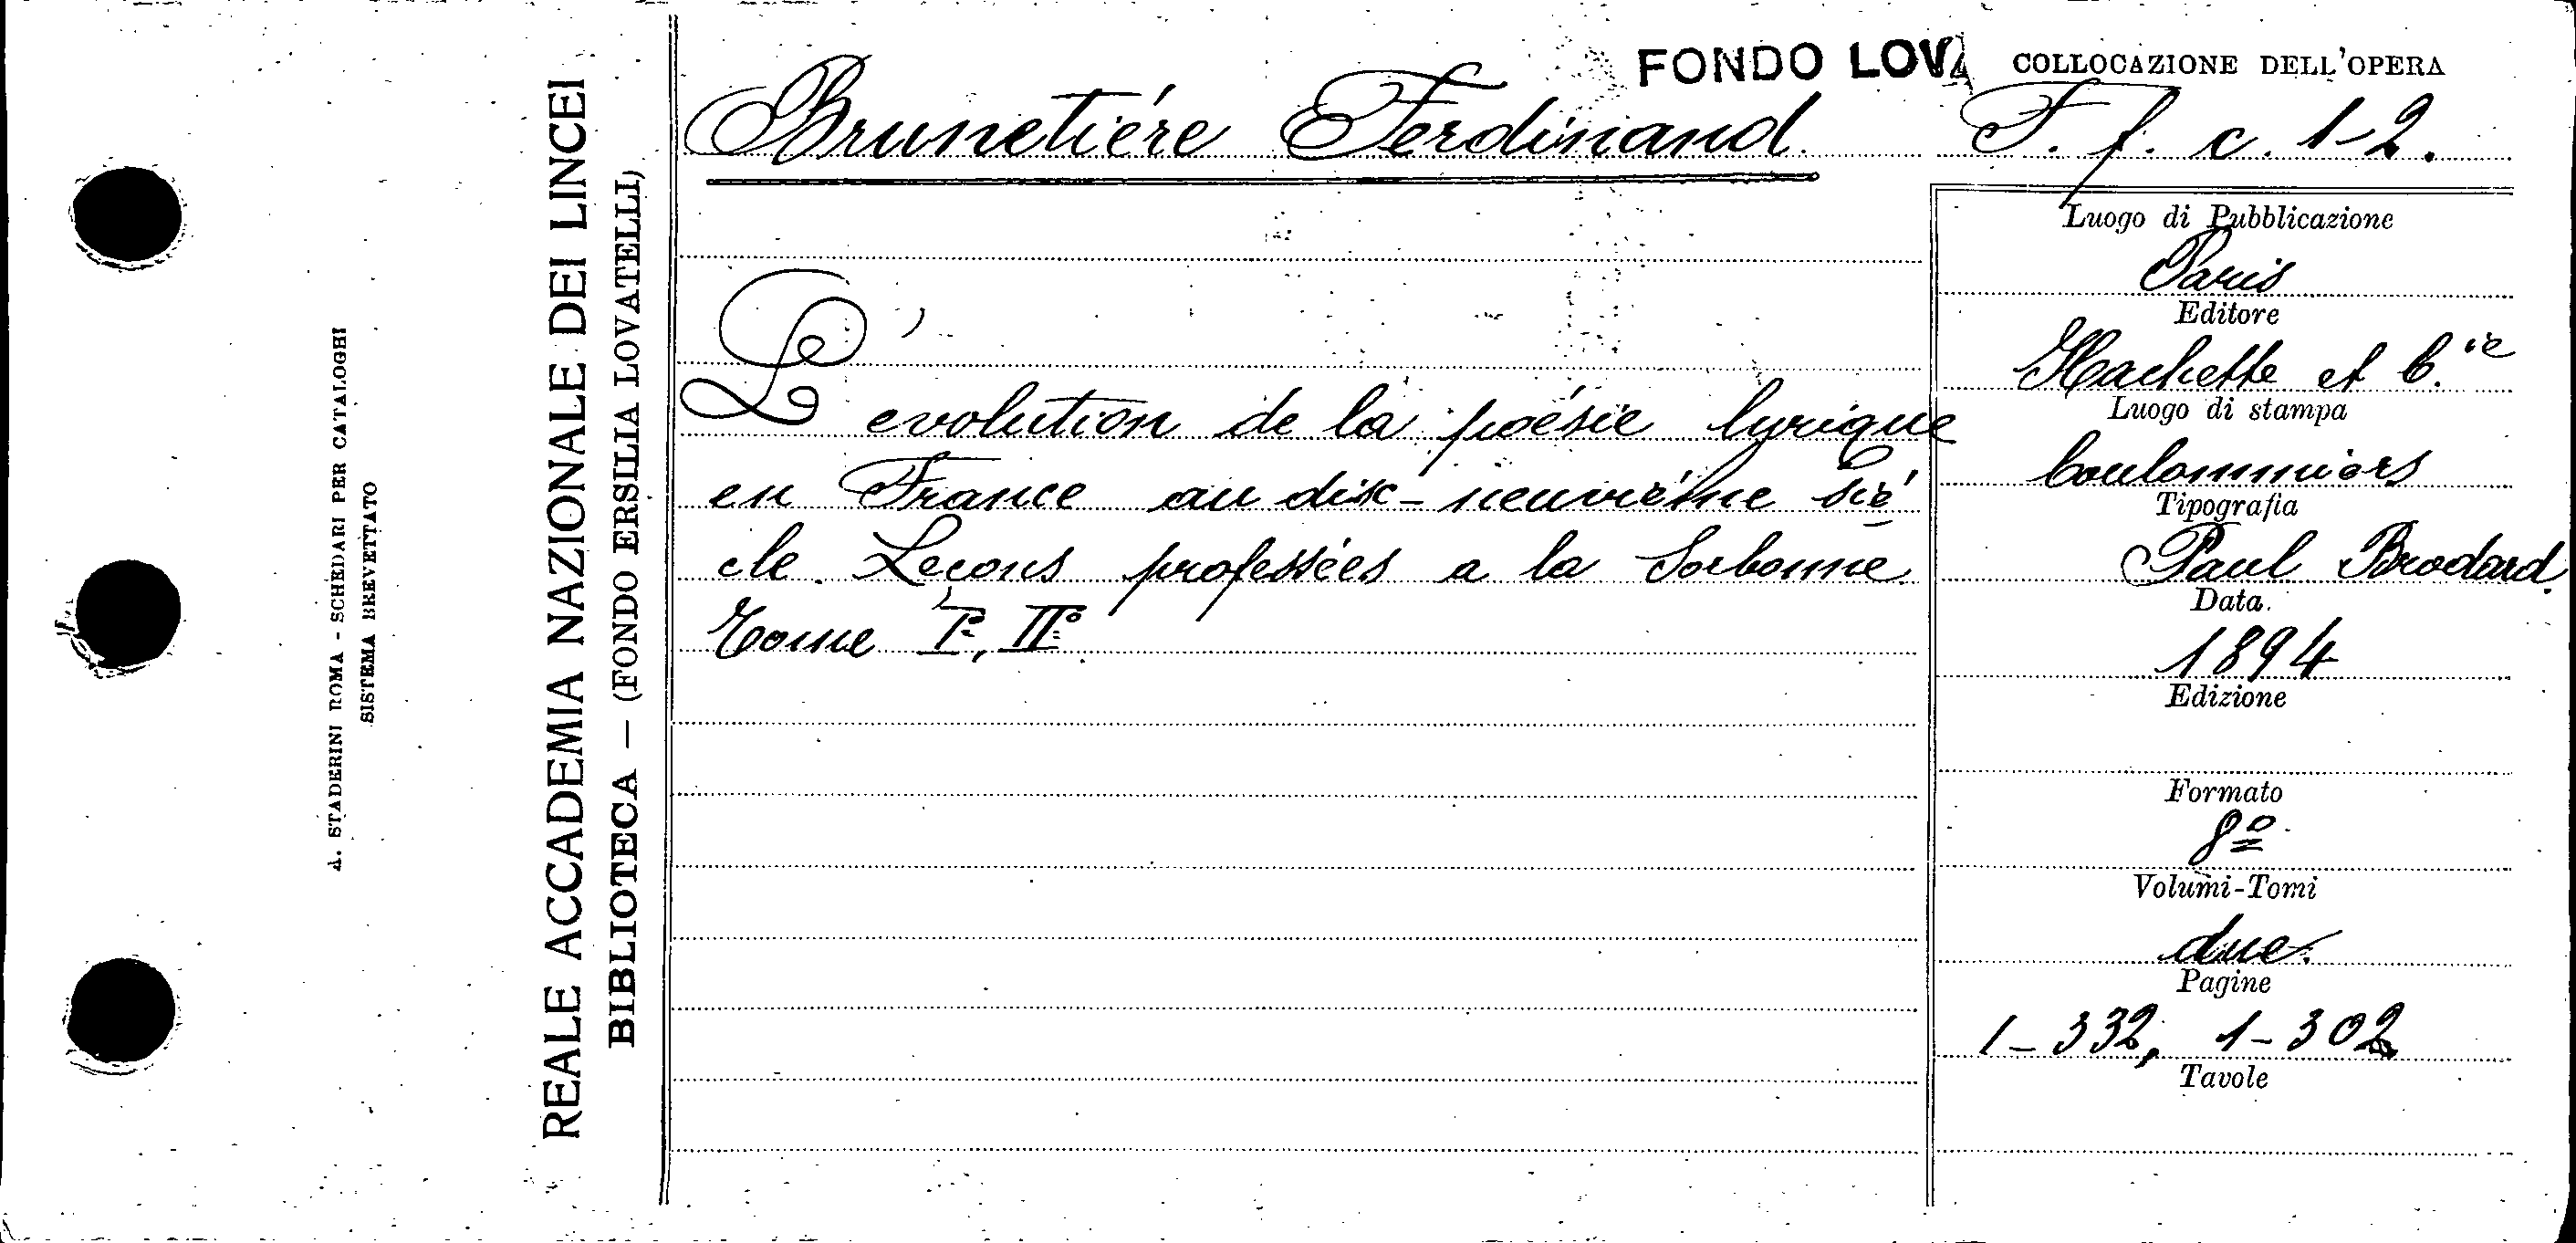 A. STADERINI ROMA - SCHEDARI PER CATALOGHI
SISTEMA BREVETTATO
REALE ACCADEMIA NAZIONALE DEI LINCEI
BIBLIOTECA — (FONDO ERSILIA LOVATELLI)
FONDO LOVA
COLLOCAZIONE DELL'OPERA
Brunetiére Ferdinand
F. f. c. 1-2.
L'
evolution de la poésie lyrique
en France au dix-neuviéme sié
cle. Leçons professées a la Sorbonne
Tome I°, II°
Luogo di Pubblicazione
Paris
Editore
Hachette et C.ie
Luogo di stampa
Coulommiers
Tipografia
Paul Brodard.
Data
1894
Edizione
Formato
8º
Volumi-Tomi
due.
Pagine
1-332, 1-302
Tavole